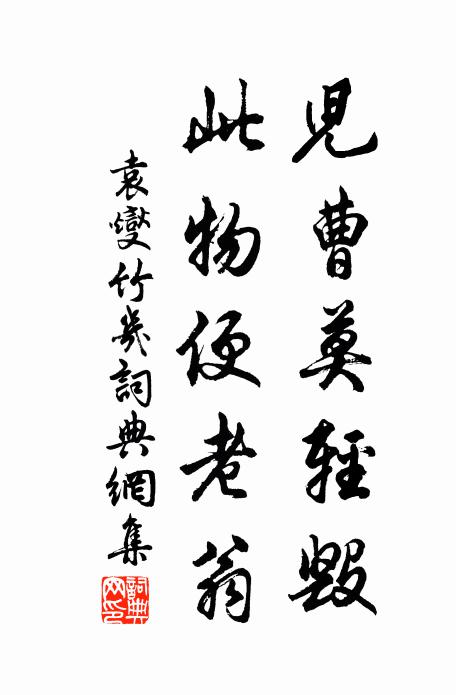 兒曹莫輕毀
此物便老翁
袁燮竹幾詞典網集
詞典网印